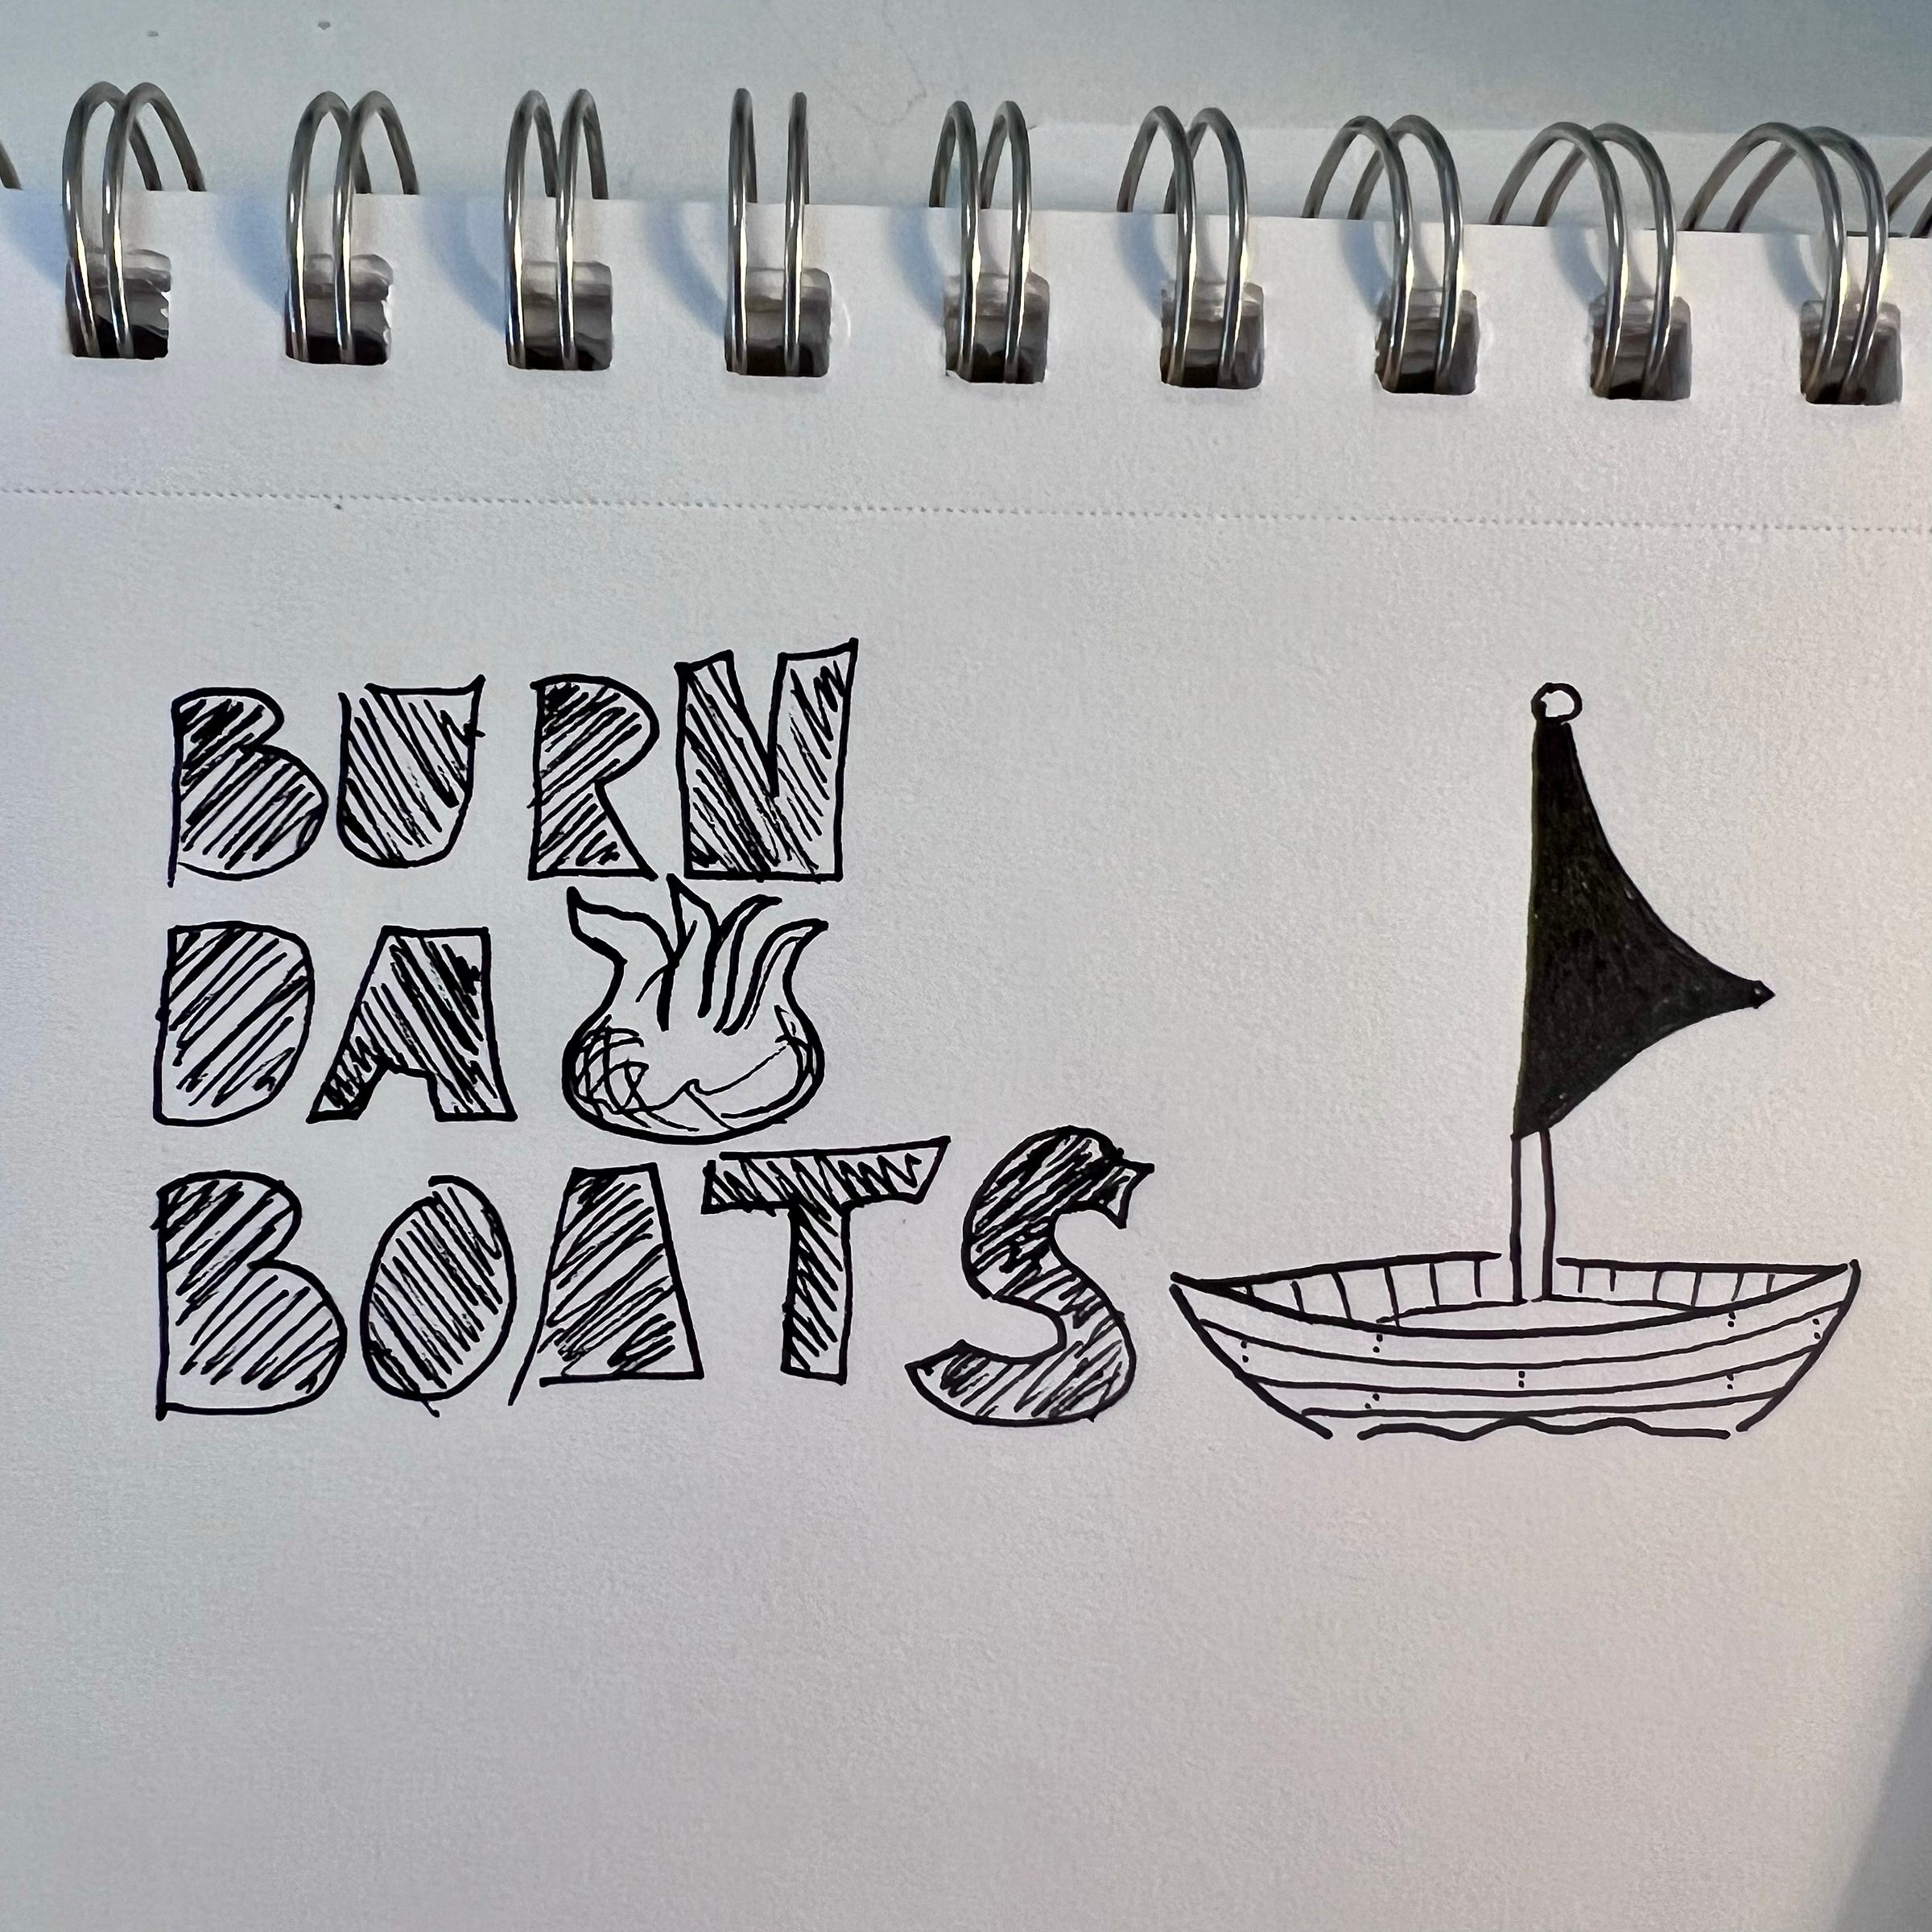 BURN
DA
BOATS